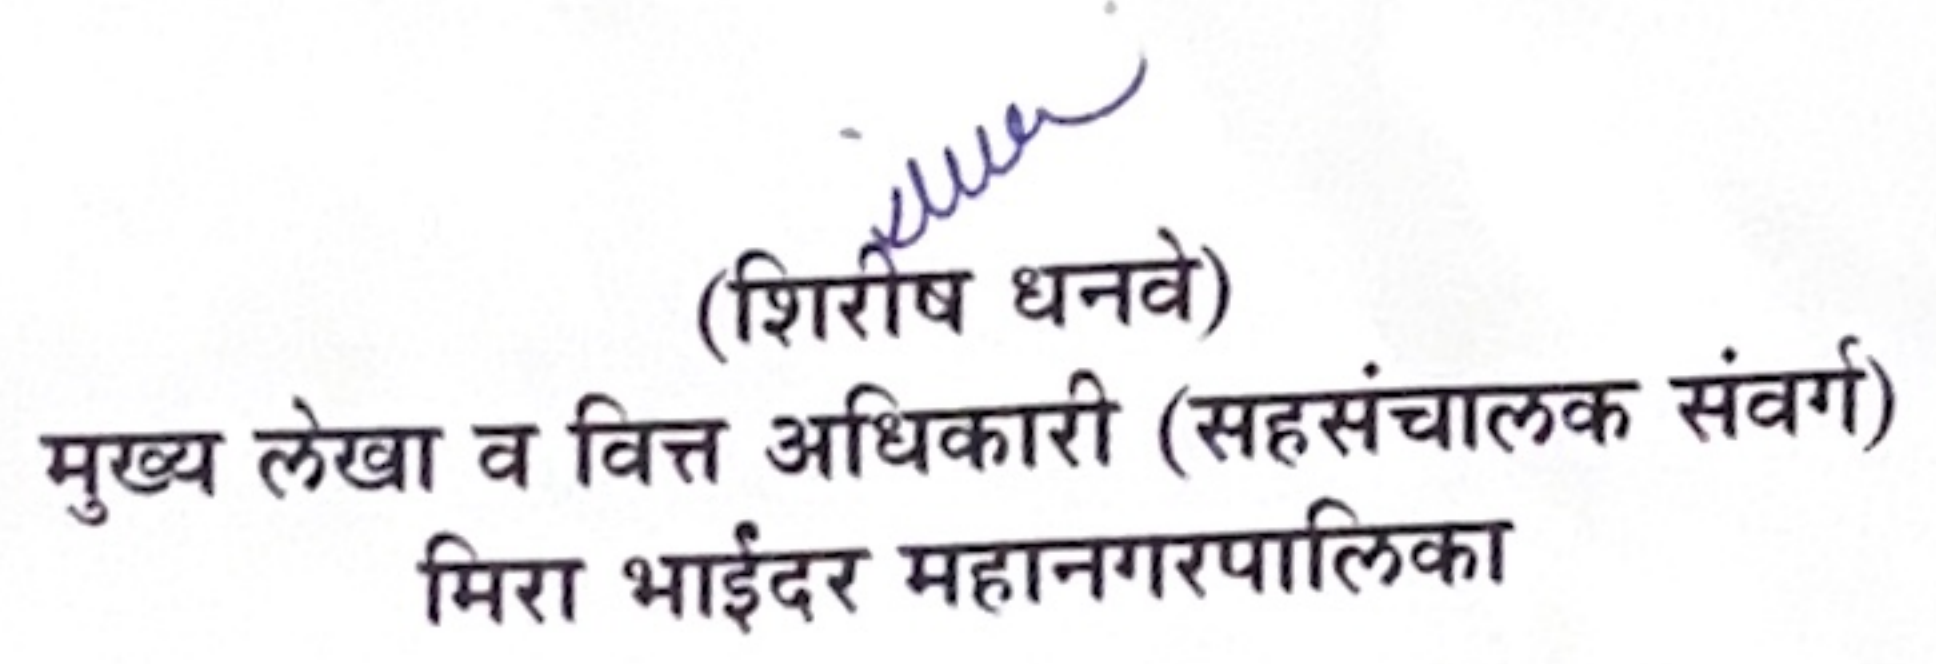 (शिरीष धनवे)
मुख्य लेखा व वित्त अधिकारी (सहसंचालक संवर्ग)
मिरा भाईंदर महानगरपालिका